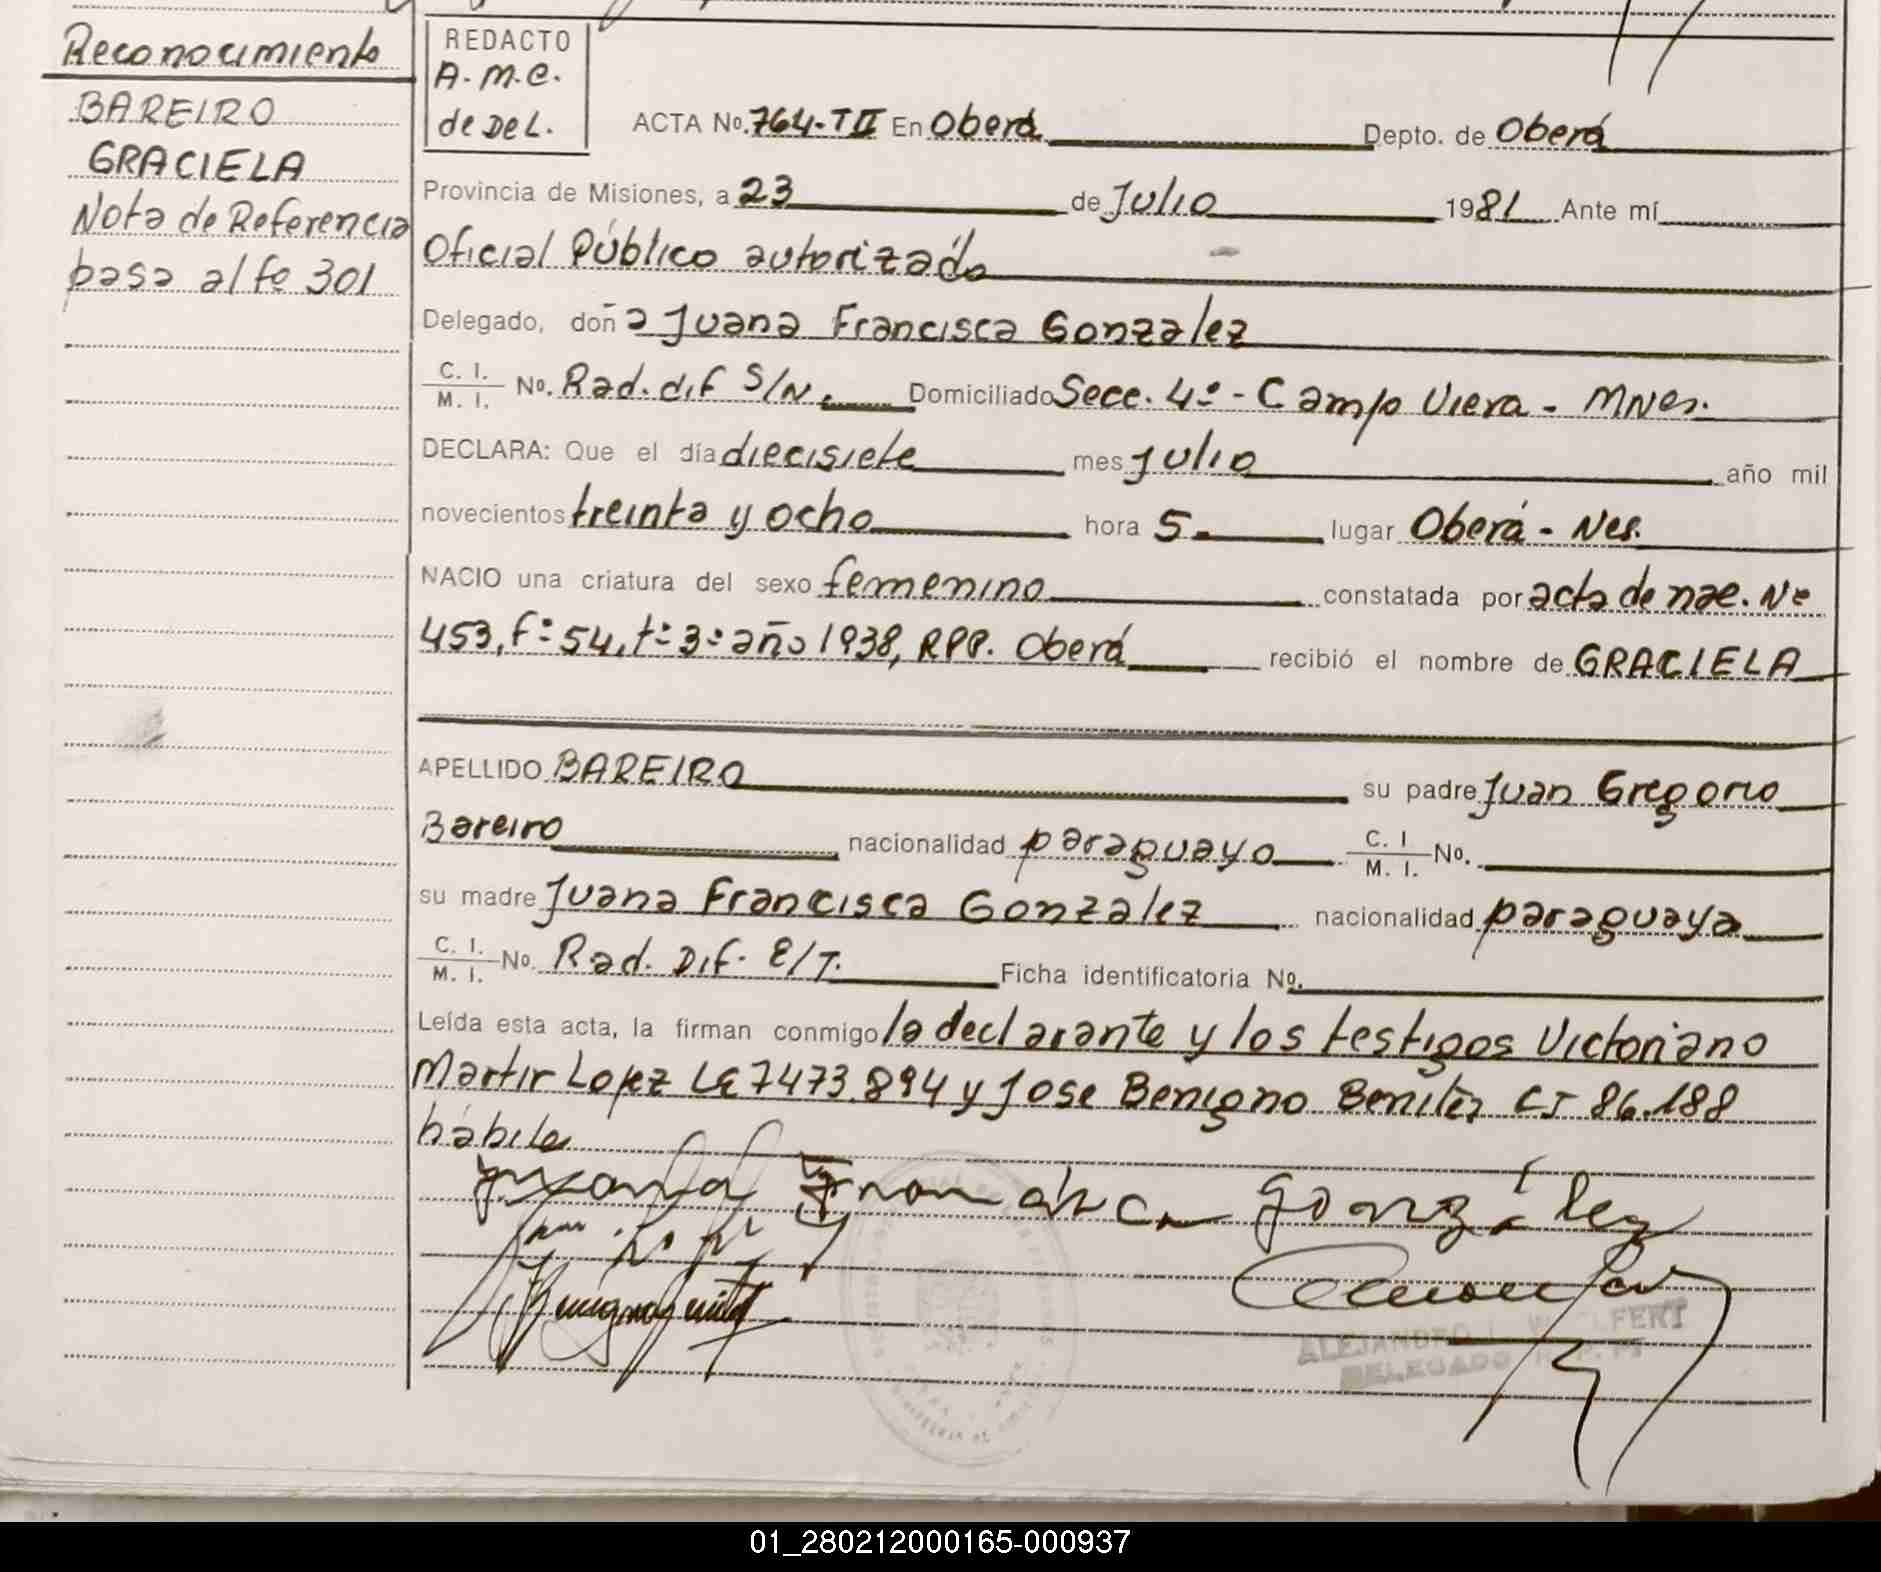 Reconocimiento
BAREIRO
GRACIELA
Nota de Referencia
pasa al fo 301
REDACTO
A.M.C.
de DeL.
ACTA No. 764-TII En Oberá Depto. de Oberá
Provincia de Misiones, a 23 de Julio 1981 Ante mí
Oficial Público autorizado
Delegado, doña Juana Francisca Gonzalez
C. I. / M. I. No. Rad. dif S/N. Domiciliado Secc. 4º - Campo Viera - MNes.
DECLARA: Que el día diecisiete mes Julio año mil
novecientos treinta y ocho hora 5 lugar Oberá - Nes.
NACIO una criatura del sexo femenino constatada por acta de nac. Nº
453, fº 54, tº 3º año 1938, RPP. Oberá recibió el nombre de GRACIELA
APELLIDO BAREIRO su padre Juan Gregorio
Bareiro nacionalidad paraguayo C. I / M. I. No.
su madre Juana Francisca Gonzalez nacionalidad paraguaya
C. I. / M. I. No. Rad. Dif. E/T. Ficha identificatoria No.
Leída esta acta, la firman conmigo la declarante y los testigos Victoriano
Martir Lopez LE 7473.894 y Jose Benigno Benitez CI 86.188
hábiles
Juana Francisca Gonzalez
ALEJANDRO L. WOLFERT
DELEGADO
01_280212000165-000937